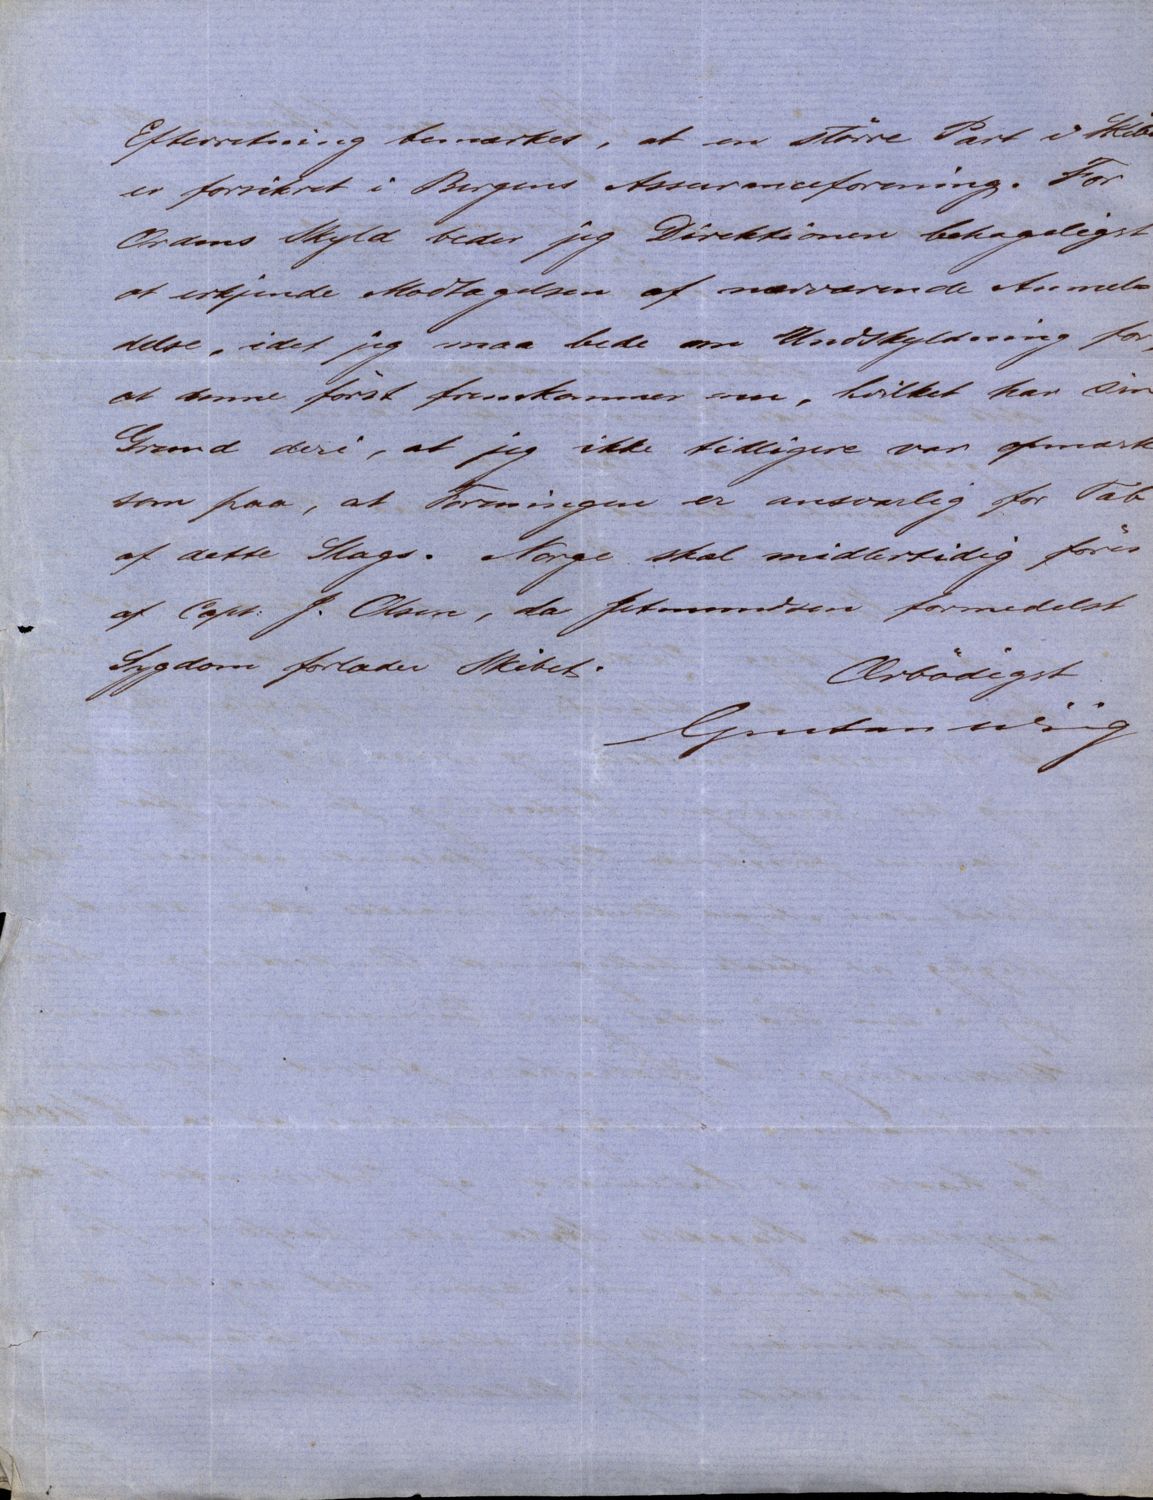 Efterretning bemærkes, at en större Part i Skibet
er forsikret i Bergens Assuranceforening. For
Ordens Skyld beder jeg Direktionen behageligst
at erkjende Modtagelsen af nærværende Anmel-
delse, idet jeg maa bede om Undskyldning for,
at denne först fremkommer nu, hvilket har sin
Grund deri, at jeg ikke tidligere var opmærk
som paa, at Foreningen er ansvarlig for Tab
af dette Slags. Norge skal midlertidig föres
af Capt. J. Olsen, da formedelst
Sygdom forlader Skibet.
Ærbödigst